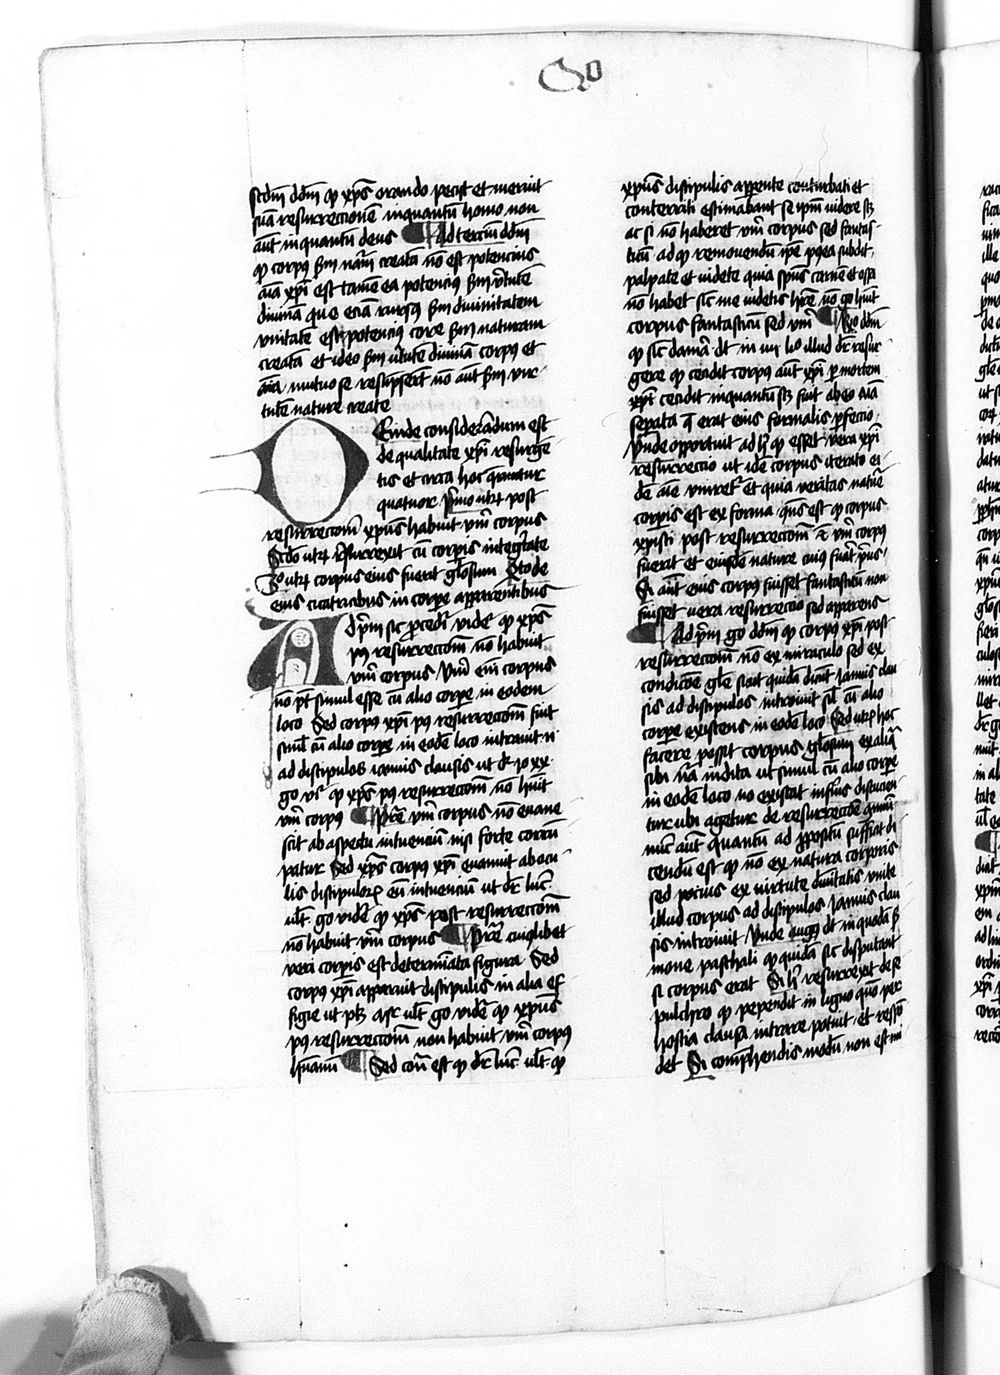 Qo
scdm ddm qp xps orando peciit et meruit
suā resurrectionē inquantū homo non
aūt inquantū deus Ad terciū ddm
qp corpus sm nām creatā nō est potencius
aīa xpi est tamē ea potencius sm vtutē
divinā que eciā rursus sm divinitatem
unitatē est potencius corpe sm naturam
creatā et ideo sm ututē divinā corpus et
aīa mutuo se resūpserūt nō aūt sm vir
tutē nature create
Deinde considerādum est
de qualitate xpi resurge
tis et circa hoc qruntur
quatuor Pmo utrū post
resurrectōm xpus habuit vm corpus
Scdo utrū rsurrexit cū corpis integrtate
3o utrū corpus eius fuerit glosum Qrto de
eius cicatricibus in corpe apparentibus
Ad pm sic pcedi videt qp xps
pus resurrectōm nō habuit
vm corpus Vm em corpus
nō pt simul esse cū alio corpe in eodem
loco Sed corpus xpi pus resurrectōm fuit
simł cū alio corpe in eodē loco intrauit n
ad discipulos ianuis clausis ut dr io xx
go vr qp xps pus resurrectōm nō huit
vm corpus Pre vm corpus nō euane
scit ab aspectu intuenciū nisi forte corrū
patur Sed corpus xpi euanuit ab ocu
lis discipulorum eū intuenciū ut dr luc
ult go videt qp xps post resurrectōm
nō habuit vm corpus Pre cuiuslibet
veri corpis est determīata figura Sed
corpus xpi apparuit discipulis in alia ef
figie ut ptz mrc ult go videt qp xpus
pus resurrectōm non habuit vm corpus
huanū Sed cōn est qp dr luc ult qp
xpus discipulis apparente conturbati et
conterriti estimabant se spm videre scz
ac si nō haberet vm corpus sed fantas
ticū ad qp removendū ipe postea subdit
palpate et videte quia spus carnē et ossa
nō habet sic me videtis hre nō go huit
corpus fantasticū sed vm Rio ddm
qp sic damas dt in iiii lio illud dr resur
gere qp cecidit corpus aūt xpi p mortem
xpi cecidit inquantū scz fuit ab eo aīa
separata q erat eius formalis perfectio
Unde opportuit ad hoc qp esset vera xpi
resurrectio ut idē corpus iterato ei
dē aīe uniret Et quia veritas naturē
corpis est ex forma qns est qp corpus
xpisti post resurrectōm et vm corpus
fuerit et eiusdē nature cuius fuāt prius
Si aūt eius corpus fuisset fantasticū non
fuisset vera resurrectio sed apparens
Ad pm go ddm qp corpus xpi post
resurrectōm nō ex miraculo sed ex
condicōe gle sicut quidā dicūt ianuis clau
sis ad discipulos introiuit sił cū alio
corpe existens in eodē loco Sed utrū hoc
facere possit corpus glosum ex aliqua
sibi nā indita ut simul cū alio corpe
in eodē loco existat inferius discucie
tur ubi agetur de resurrectōe qmuni
nūc aūt quantū ad ppositū sufficit di
cendū est qp nō ex natura corporis
sed pocius ex virtute divitatis unite
illud corpus ad discipulos ianuis clau
sis introiuit Unde augus dt in quodā s
mone paschali qp quidā sic disputant
si corpus erat Si hoc resurrexit de se
pulchro qp pependit in ligno quo per
hostia clausa intrare potuit et respō
det Si comphendis modū non est mi